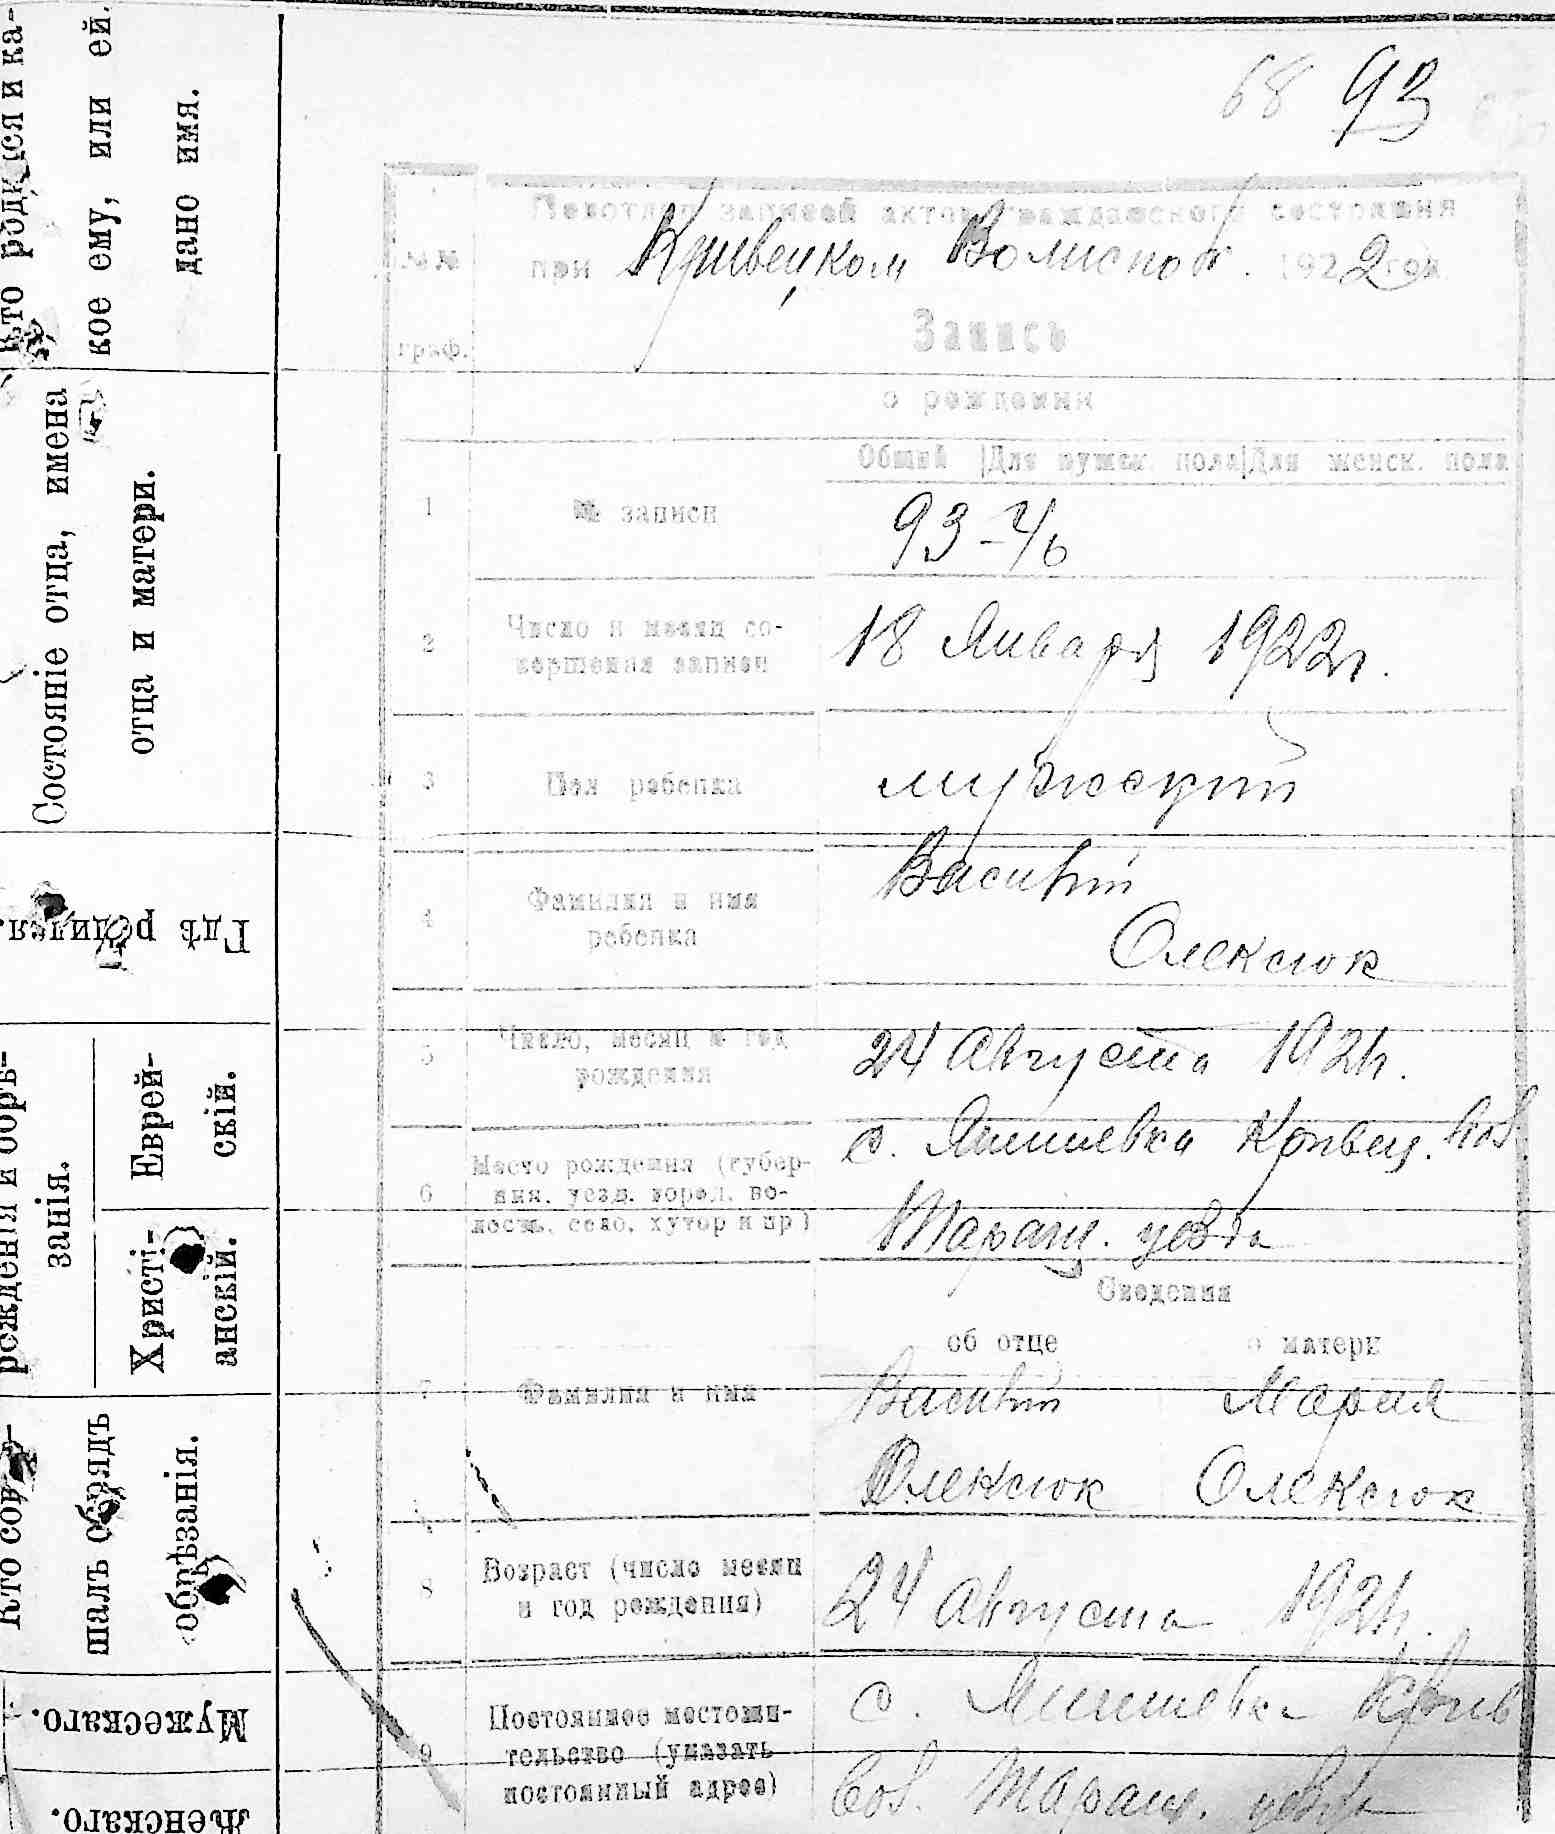 68 93
Подотдел записей актов гражданского состояния
при Кривецком Волиспол. 1922 год
№№
граф.
Запись
о рождении
Общий | Для мужск. пола | Для женск. пола
1 № записи 93-46
2 Число и месяц со-
вершения записи
18 Января 1922 г.
3 Пол ребенка мужский
4 Фамилия и имя
ребенка
Василий
Олексюк
5 Число, месяц и год
рождения
24 Августа 1921 г.
6 Место рождения (губер-
ния, уезд, город, во-
лость, село, хутор и пр)
с. Янишевка Кривец. вол.
Таращ. уезда
Сведения
об отце о матери
7 Фамилия и имя
Василий Мария
Олексюк Олексюк
8 Возраст (число месяц
и год рождения)
24 Августа 1921 г.
9 Постоянное местожи-
тельство (указать
постоянный адрес)
с. Янишевка Крив
вол. Таращ. уезда
кто родился и ка-
кое ему, или ей,
дано имя.
Состояніе отца, имена
отца и матери.
Гдѣ родился.
рожденія и обрѣ-
занія.
Еврей-
скій.
Христі-
анскій.
Кто совер-
шалъ обрядъ
обрѣзанія.
Мужескаго.
Женскаго.